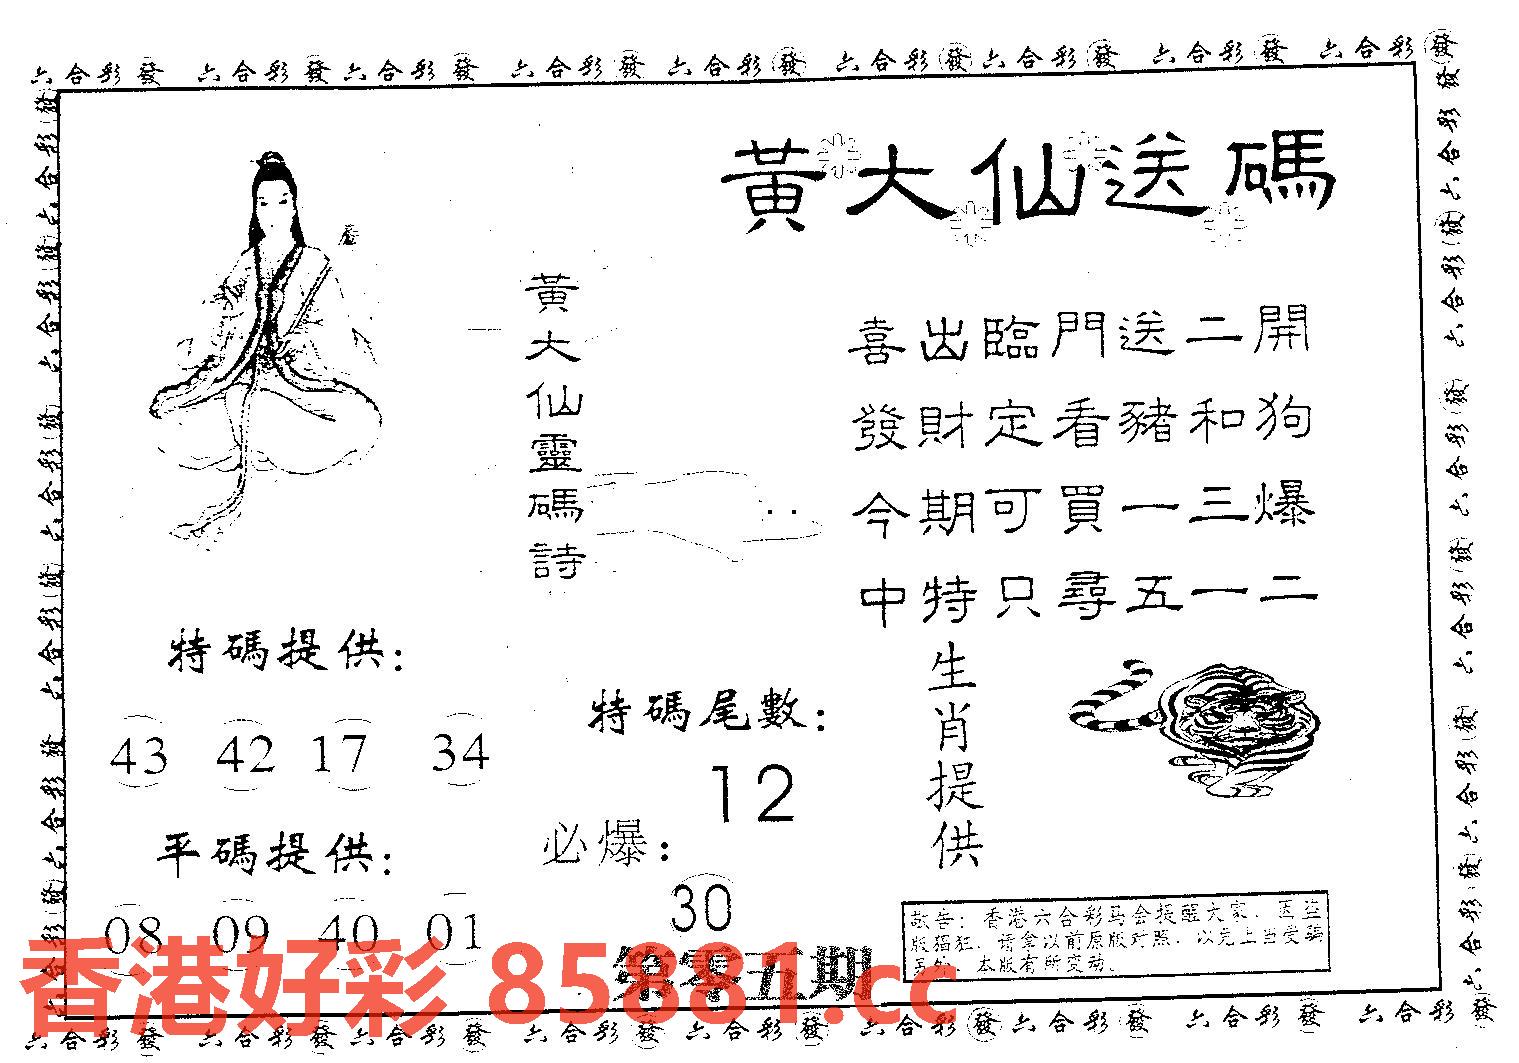 六合彩發 六合彩發 六合彩發 六合彩發 六合彩發 六合彩發 六合彩發 六合彩發 六合彩發
黃大仙送碼
黃大仙靈碼詩
喜出臨門送二開
發財定看豬和狗
今期可買一三爆
中特只尋五一二
特碼提供：
43 42 17 34
平碼提供：
08 09 40 01
特碼尾數：
12
必爆：
30
第零五期
生肖提供
敬告：香港六合彩马会提醒大家，因盗
版猖狂，请拿以前原版对照，以免上当受骗
另外，本版有所变动。
香港好彩 85881.cc
六合彩發 六合彩發 六合彩發 六合彩發 六合彩發 六合彩發 六合彩發 六合彩發 六合彩發